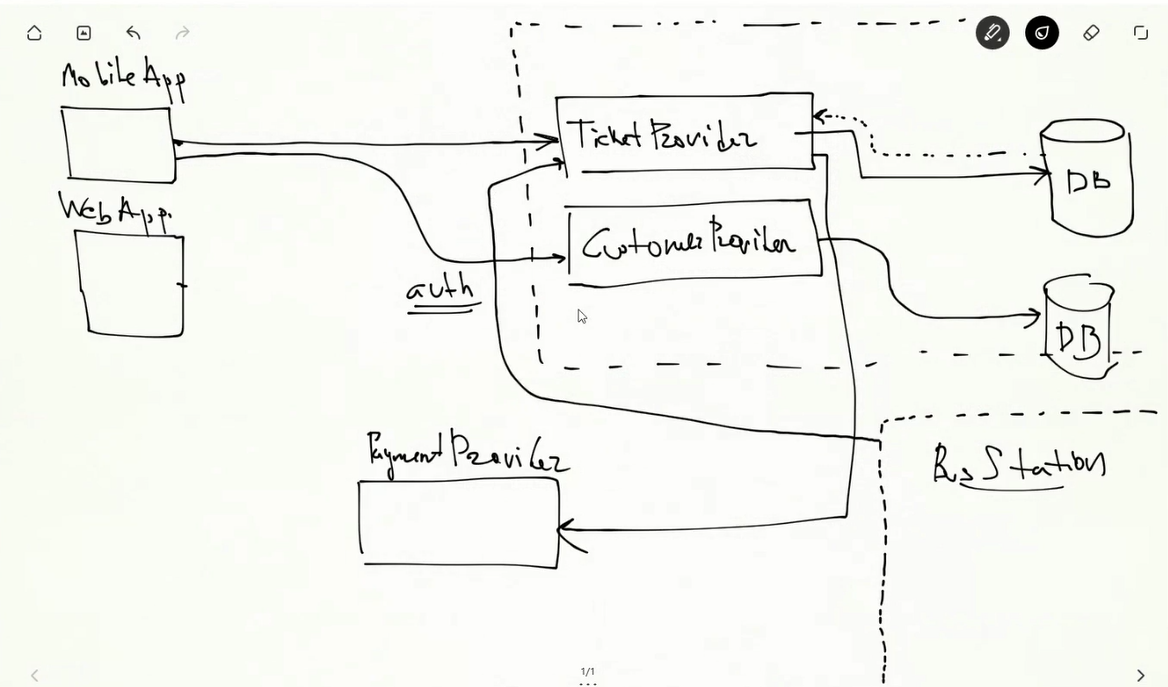 Mobile App
TicketProvider
DB
Web App.
CustomerProvider
auth
DB
PaymentProvider
Bus Station
1/1